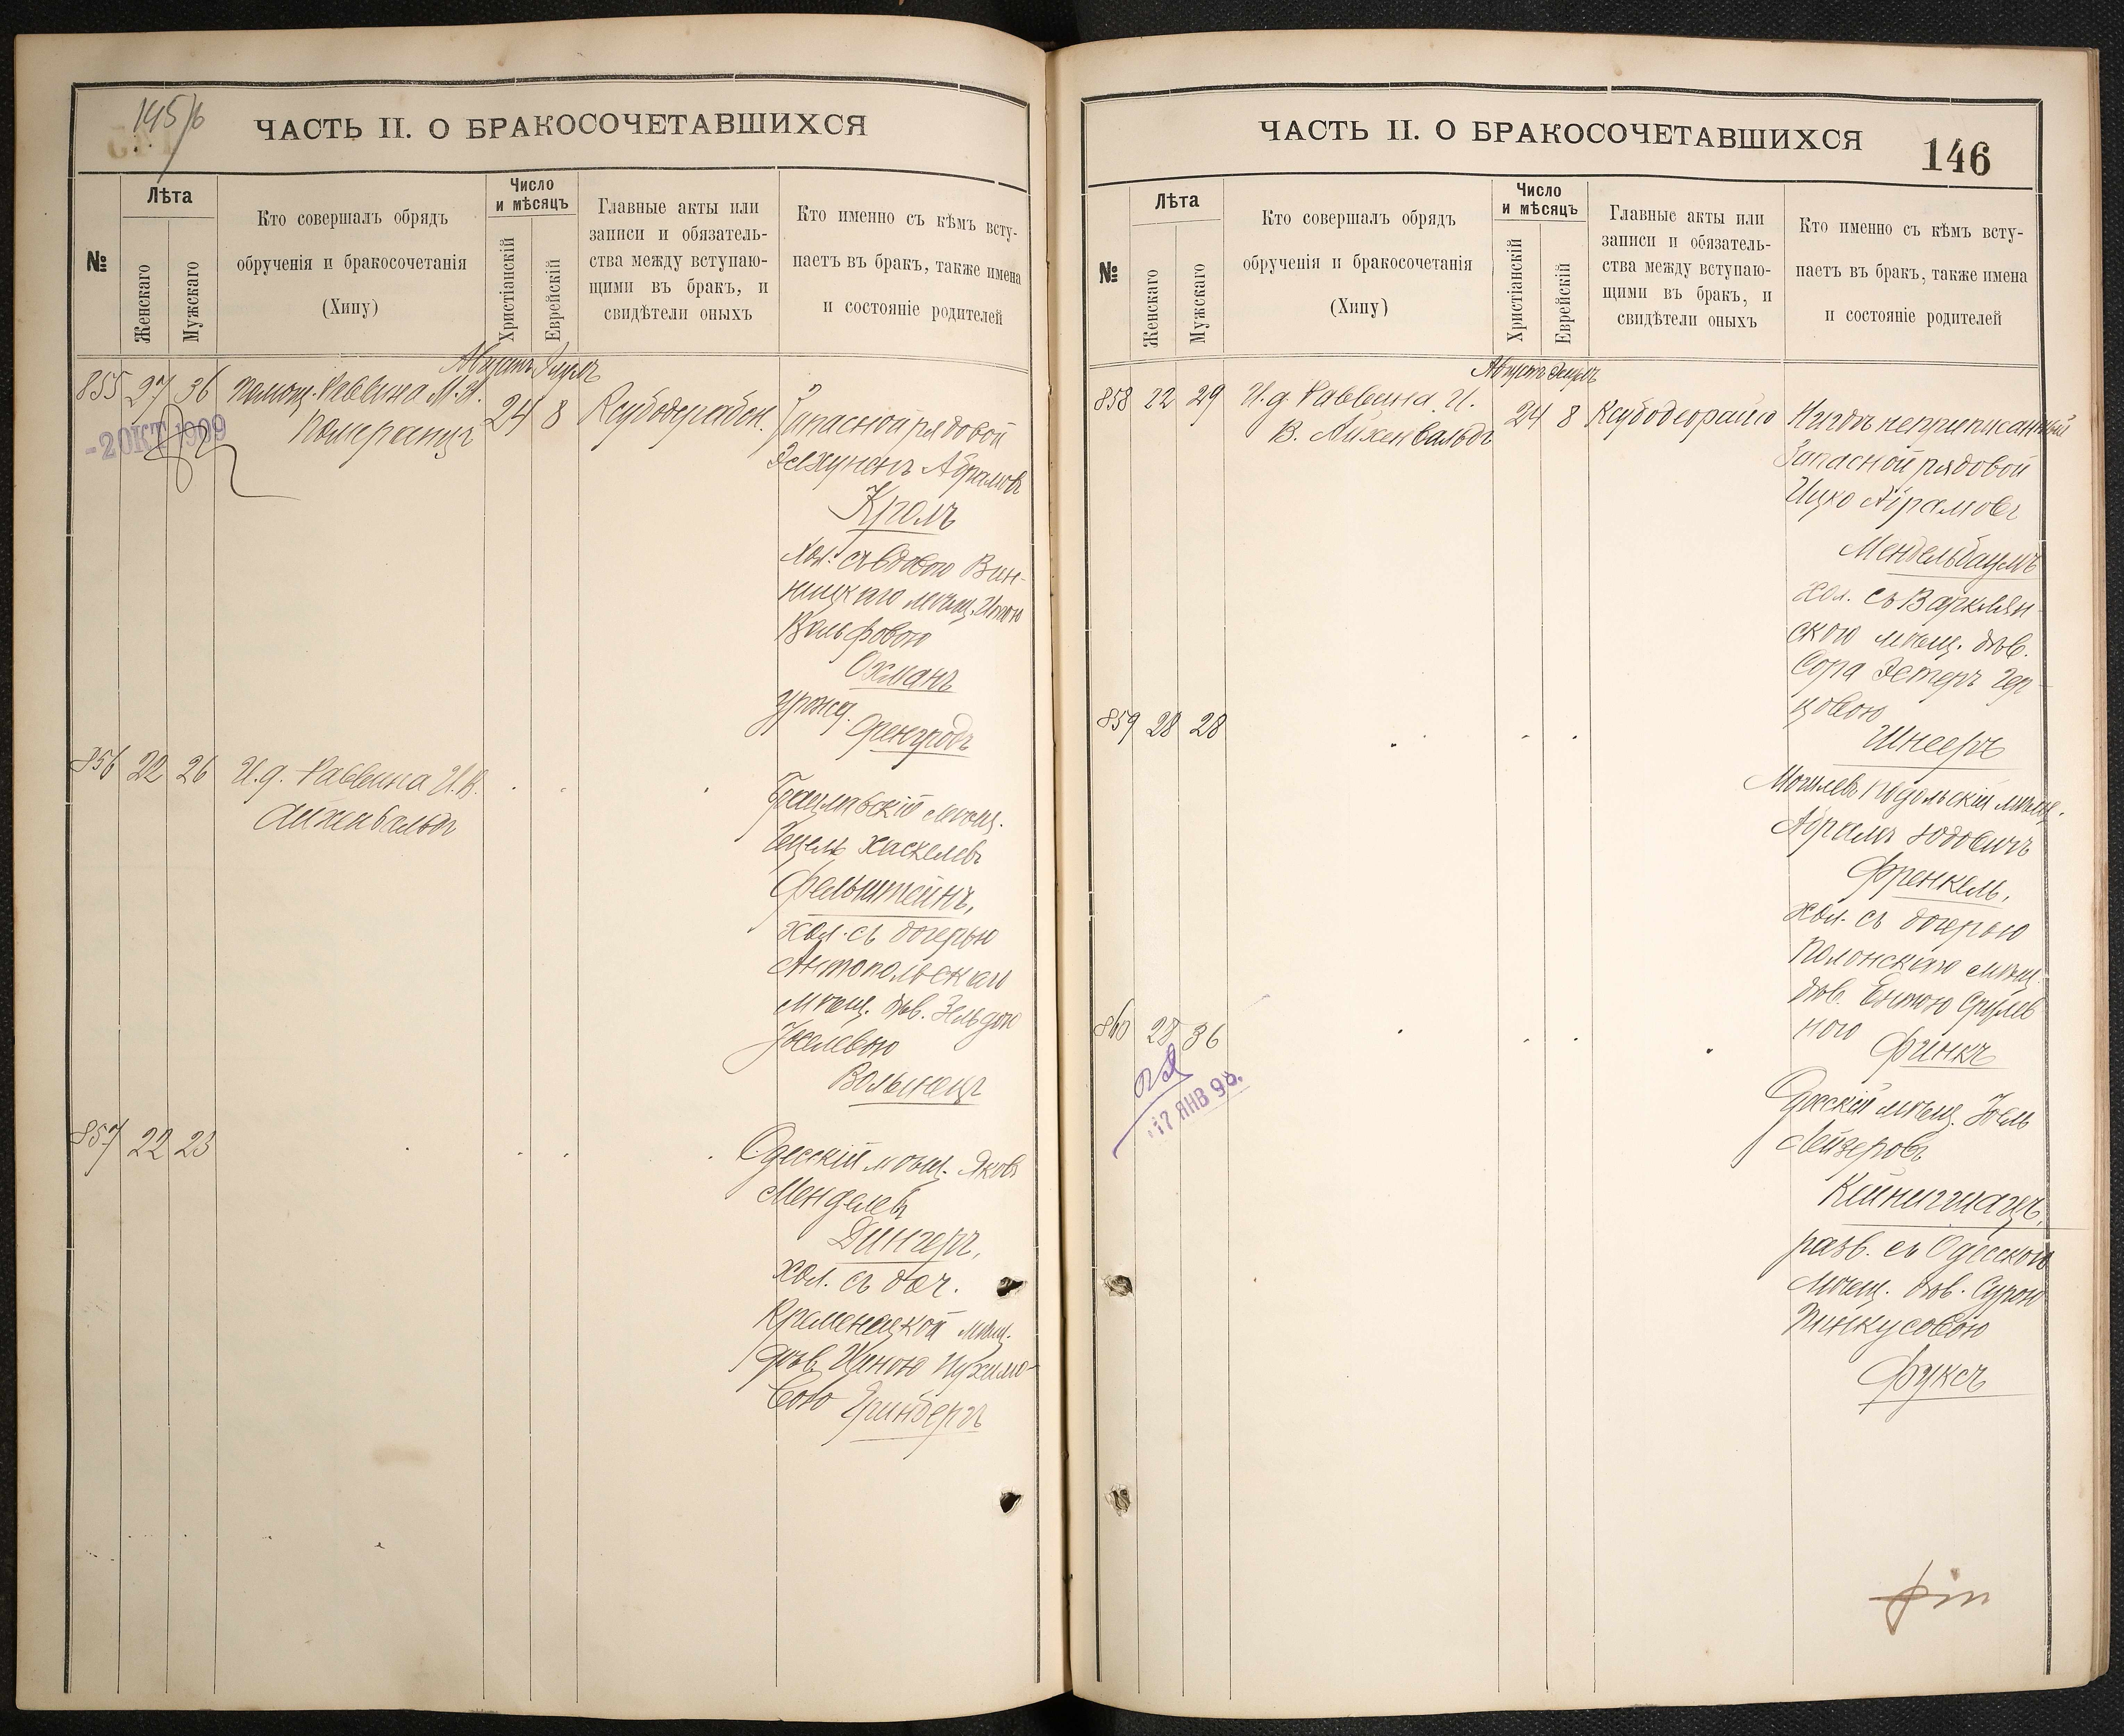 145/6
ЧАСТЬ II. О БРАКОСОЧЕТАВШИХСЯ
№
Лѣта
Женскаго
Мужскаго
Кто совершалъ обрядъ
обрученія и бракосочетанія
(Хипу)
Число
и мѣсяцъ
Христіанскій
Еврейскій
Главные акты или
записи и обязатель-
ства между вступаю-
щими въ бракъ, и
свидѣтели оныхъ
Кто именно съ кѣмъ всту-
паетъ въ бракъ, также имена
и состояніе родителей
Августъ Элулъ
855 27 36 помощ. Раввина М. И.
Померанцъ
24 8
-2 ОКТ 1909
Запасной рядовой
Эльхуненъ Абрамовъ
Кролъ
хол. съ вдовою Вин-
ницкаго мѣщ.
Вольфовою
Охманъ
урожд.
856 22 26 И. д. Раввина И. В.
Айхенвальдъ
Брацлавскій мѣщ.
Хаскелевъ
Фельштейнъ,
хол. съ дочерью
Антопольскаго
мѣщ. дѣв. Зельдою
Іоселевою
Волынецъ
857 22 23
Одесскій мѣщ. Яковъ
Менделевъ
Дингеръ,
хол. съ доч.
Кременецкой мѣщ.
дѣв. Нухимо-
вою Гринбергъ
ЧАСТЬ II. О БРАКОСОЧЕТАВШИХСЯ
146
№
Лѣта
Женскаго
Мужскаго
Кто совершалъ обрядъ
обрученія и бракосочетанія
(Хипу)
Число
и мѣсяцъ
Христіанскій
Еврейскій
Главные акты или
записи и обязатель-
ства между вступаю-
щими въ бракъ, и
свидѣтели оныхъ
Кто именно съ кѣмъ всту-
паетъ въ бракъ, также имена
и состояніе родителей
Августъ Элулъ
858 22 29 И. д. Раввина И.
В. Айхенвальдъ
24 8
Нигдѣ неприписанный
Запасной рядовой
Ицко Абрамовъ
Мендельбаумъ
хол. съ Варклян-
скою мѣщ. дѣв.
Сора Эстеръ Гер-
цовою
Шнееръ
859 28 28
Могилевъ Подольскій мѣщ.
Абрамъ Юдовичъ
Френкель,
хол. съ дочерью
Полонскаго мѣщ.
дѣв. Ентою Срулев
ною Финкъ
860 28 36
17 ЯНВ 98.
Одесскій мѣщ. Іосль
Лейзеровъ
разв. съ Одесскою
мѣщ. дѣв. Сурою
Пинкусовою
Фуксъ